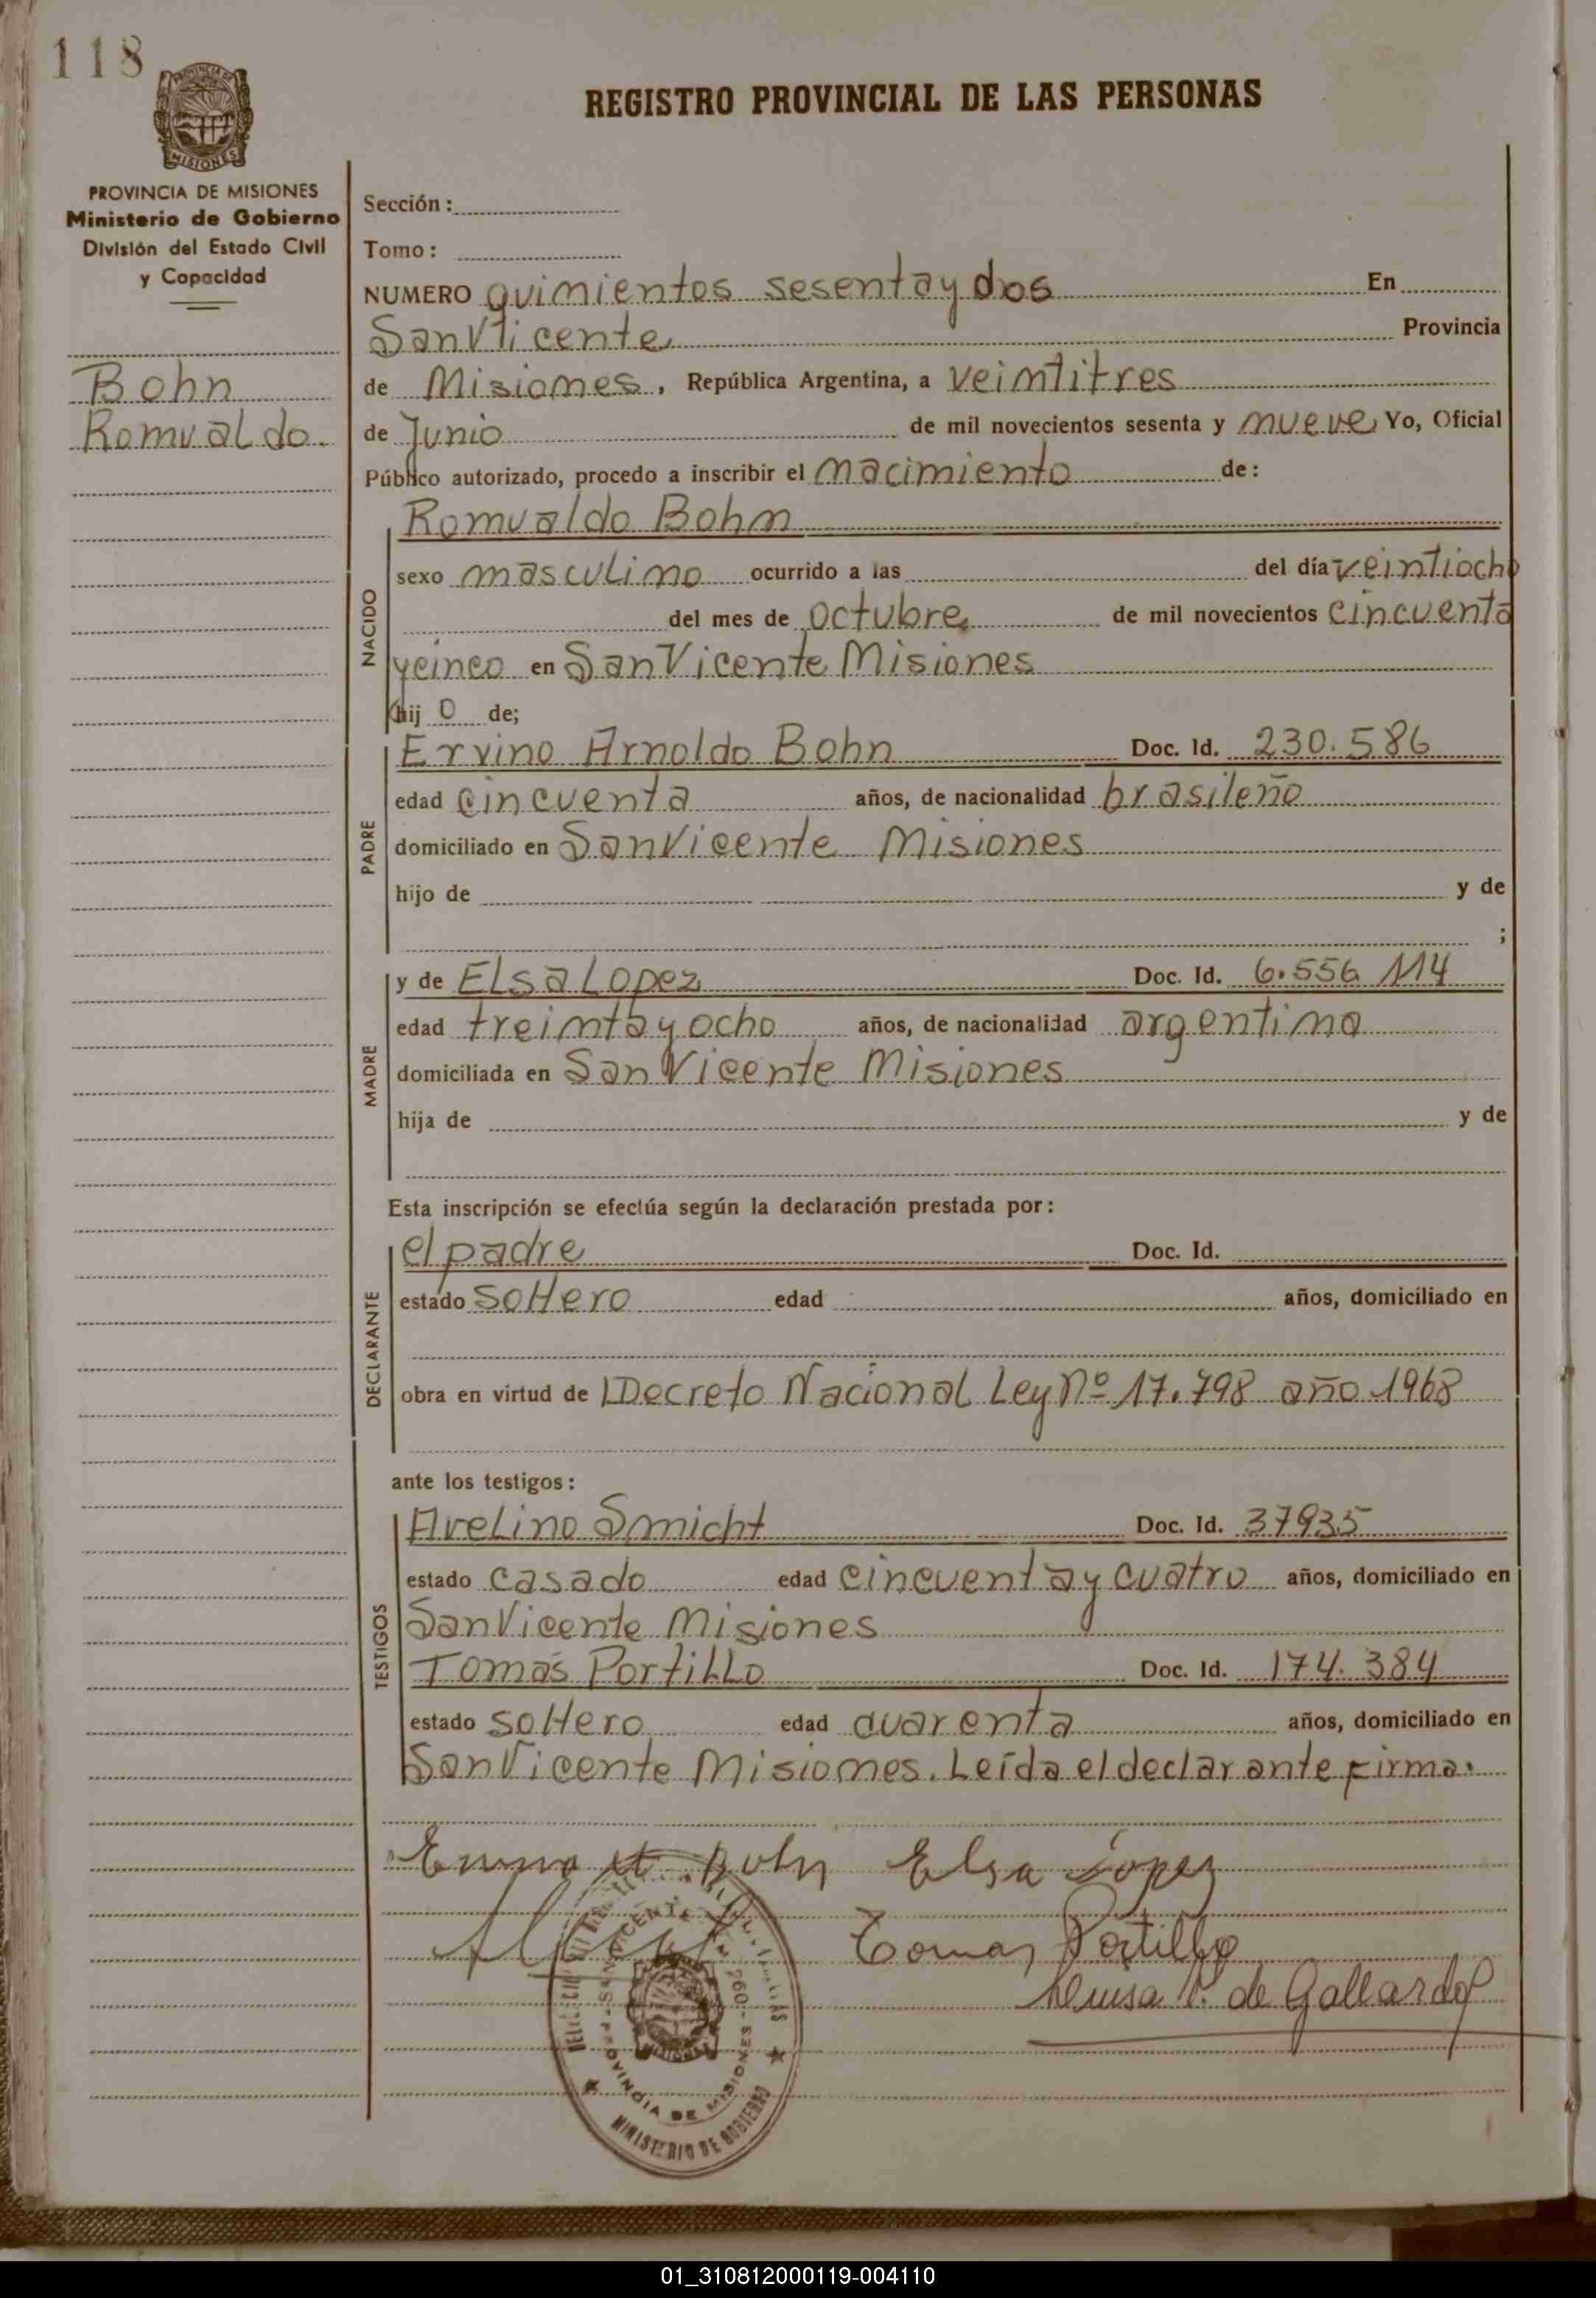 118
REGISTRO PROVINCIAL DE LAS PERSONAS
PROVINCIA DE MISIONES
Ministerio de Gobierno
División del Estado Civil
y Capacidad
Bohn
Romualdo.
Sección:
Tomo:
NUMERO quimientos sesenta y dos En
San Vicente Provincia
de Misiones, República Argentina, a veintitres
de Junio de mil novecientos sesenta y nueve Yo, Oficial
Público autorizado, procedo a inscribir el nacimiento de:
NACIDO
Romualdo Bohn
sexo masculino ocurrido a las del día veintiocho
del mes de octubre de mil novecientos cincuenta
y cinco en San Vicente Misiones
hij o de;
PADRE
Ervino Arnoldo Bohn Doc. Id. 230.586
edad cincuenta años, de nacionalidad brasileño
domiciliado en San Vicente Misiones
hijo de y de
;
MADRE
y de Elsa Lopez Doc. Id. 6.556 114
edad treinta y ocho años, de nacionalidad argentina
domiciliada en San Vicente Misiones
hija de y de
Esta inscripción se efectúa según la declaración prestada por:
DECLARANTE
el padre Doc. Id.
estado soltero edad años, domiciliado en
obra en virtud de Decreto Nacional Ley Nº 17.798 año 1968
ante los testigos:
TESTIGOS
Avelino Smicht Doc. Id. 37935
estado casado edad cincuenta y cuatro años, domiciliado en
San Vicente Misiones
Tomás Portillo Doc. Id. 174.384
estado soltero edad cuarenta años, domiciliado en
San Vicente Misiones. Leída el declarante firma.
Bohn Elsa Lopez
Tomas Portillo
de Gallardo
SAN VICENTE
PROVINCIA DE MISIONES
MINISTERIO DE GOBIERNO
01_310812000119-004110